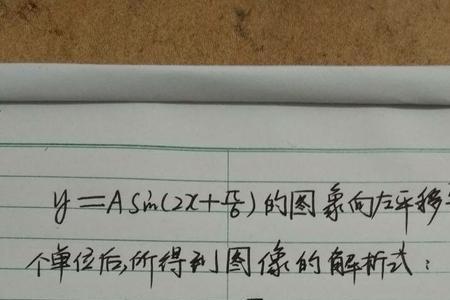 y=Asin(2x+π/6)的图象向左平移
个单位后,所得到图像的解析式: